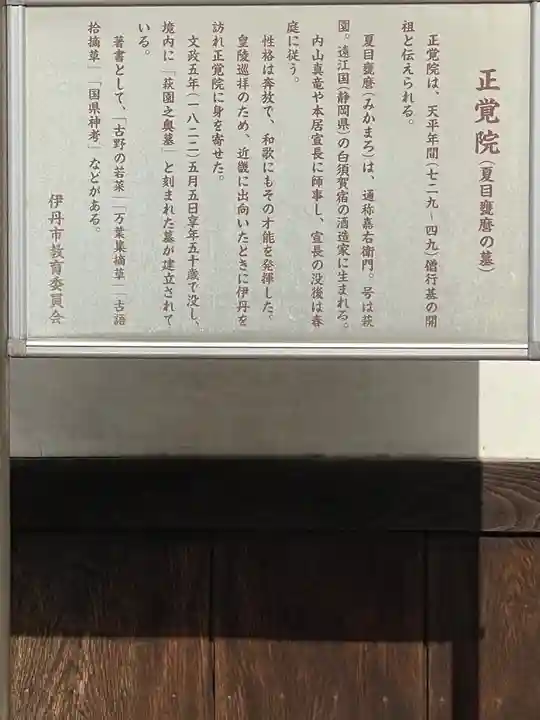 正覚院(夏目甕麿の墓)
正覚院は、天平年間(七二九～四九)僧行基の開
祖と伝えられる。
夏目甕麿(みかまろ)は、通称嘉右衛門。号は萩
園。遠江国(静岡県)の白須賀宿の酒造家に生まれる。
内山真竜や本居宣長に師事し、宣長の没後は春
庭に従う。
性格は奔放で、和歌にもその才能を発揮した。
皇陵巡拝のため、近畿に出向いたときに伊丹を
訪れ正覚院に身を寄せた。
文政五年(一八二二)五月五日享年五十歳で没し、
境内に「萩園之奥墓」と刻まれた墓が建立されて
いる。
著書として、「古野の若菜」「万葉集摘草」「古語
拾摘草」「国県神考」などがある。
伊丹市教育委員会